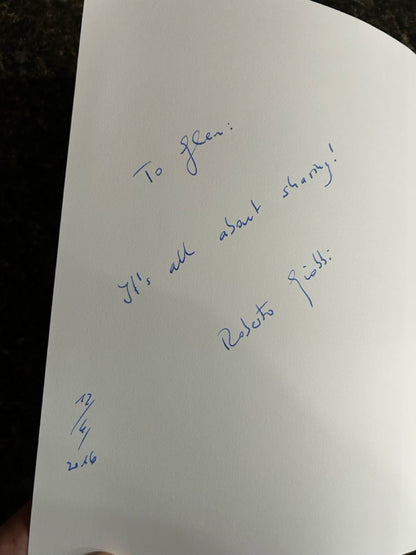 To Glen:
It's all about sharing!
Roberto Giobbi
12
2016